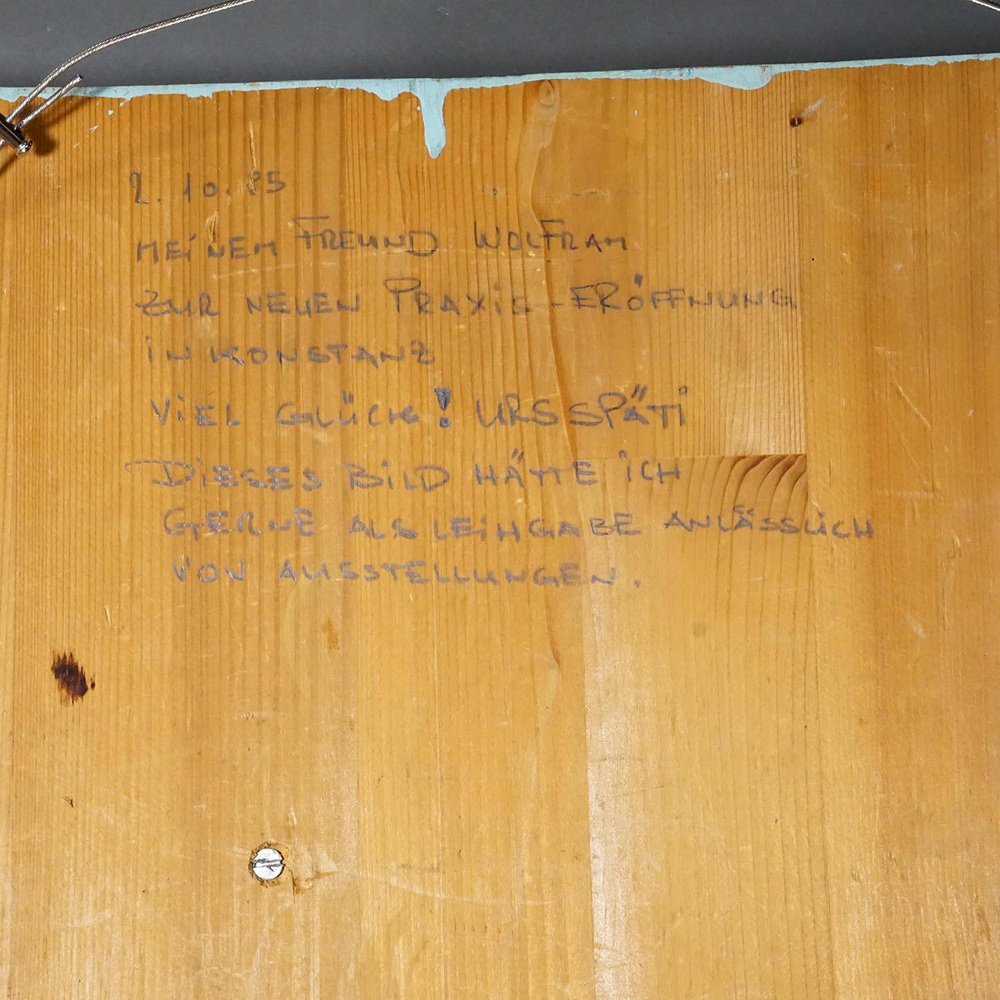 2.10.95
MEINEM FREUND WOLFRAM
ZUR NEUEN PRAXIS-ERÖFFNUNG
IN KONSTANZ
VIEL GLÜCK! URS SPÄTI
DIESES BILD HÄTTE ICH
GERNE ALS LEIHGABE ANLÄSSLICH
VON AUSSTELLUNGEN.